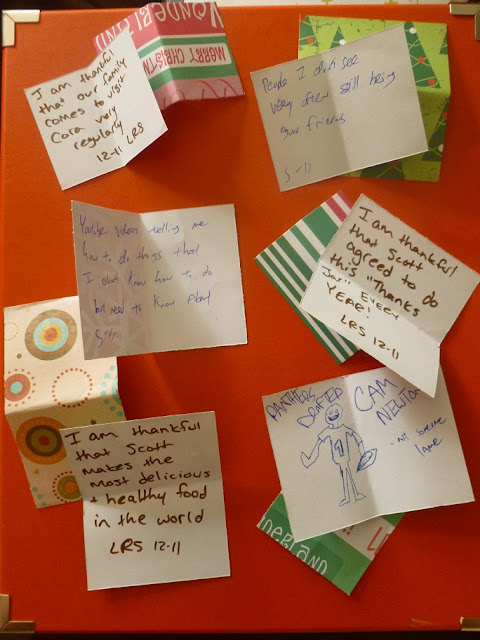 WONDERLAND
MERRY CHRISTM
I am thankful
that our family
comes to visit
Cora very
regularly
12-11 LRS
People I don't see
very often still being
good friends
S '11
Youtube videos telling me
how to do things that
I don't know how to do
but need to know about
S '11
I am thankful
that Scott
agreed to do
this "Thanks
Jar" EVERY
YEAR!
LRS 12-11
I am thankful
that Scott
makes the
most delicious
+ healthy food
in the world
LRS 12-11
PANTHERS
DRAFTED
CAM
NEWTON
1
DERLAND